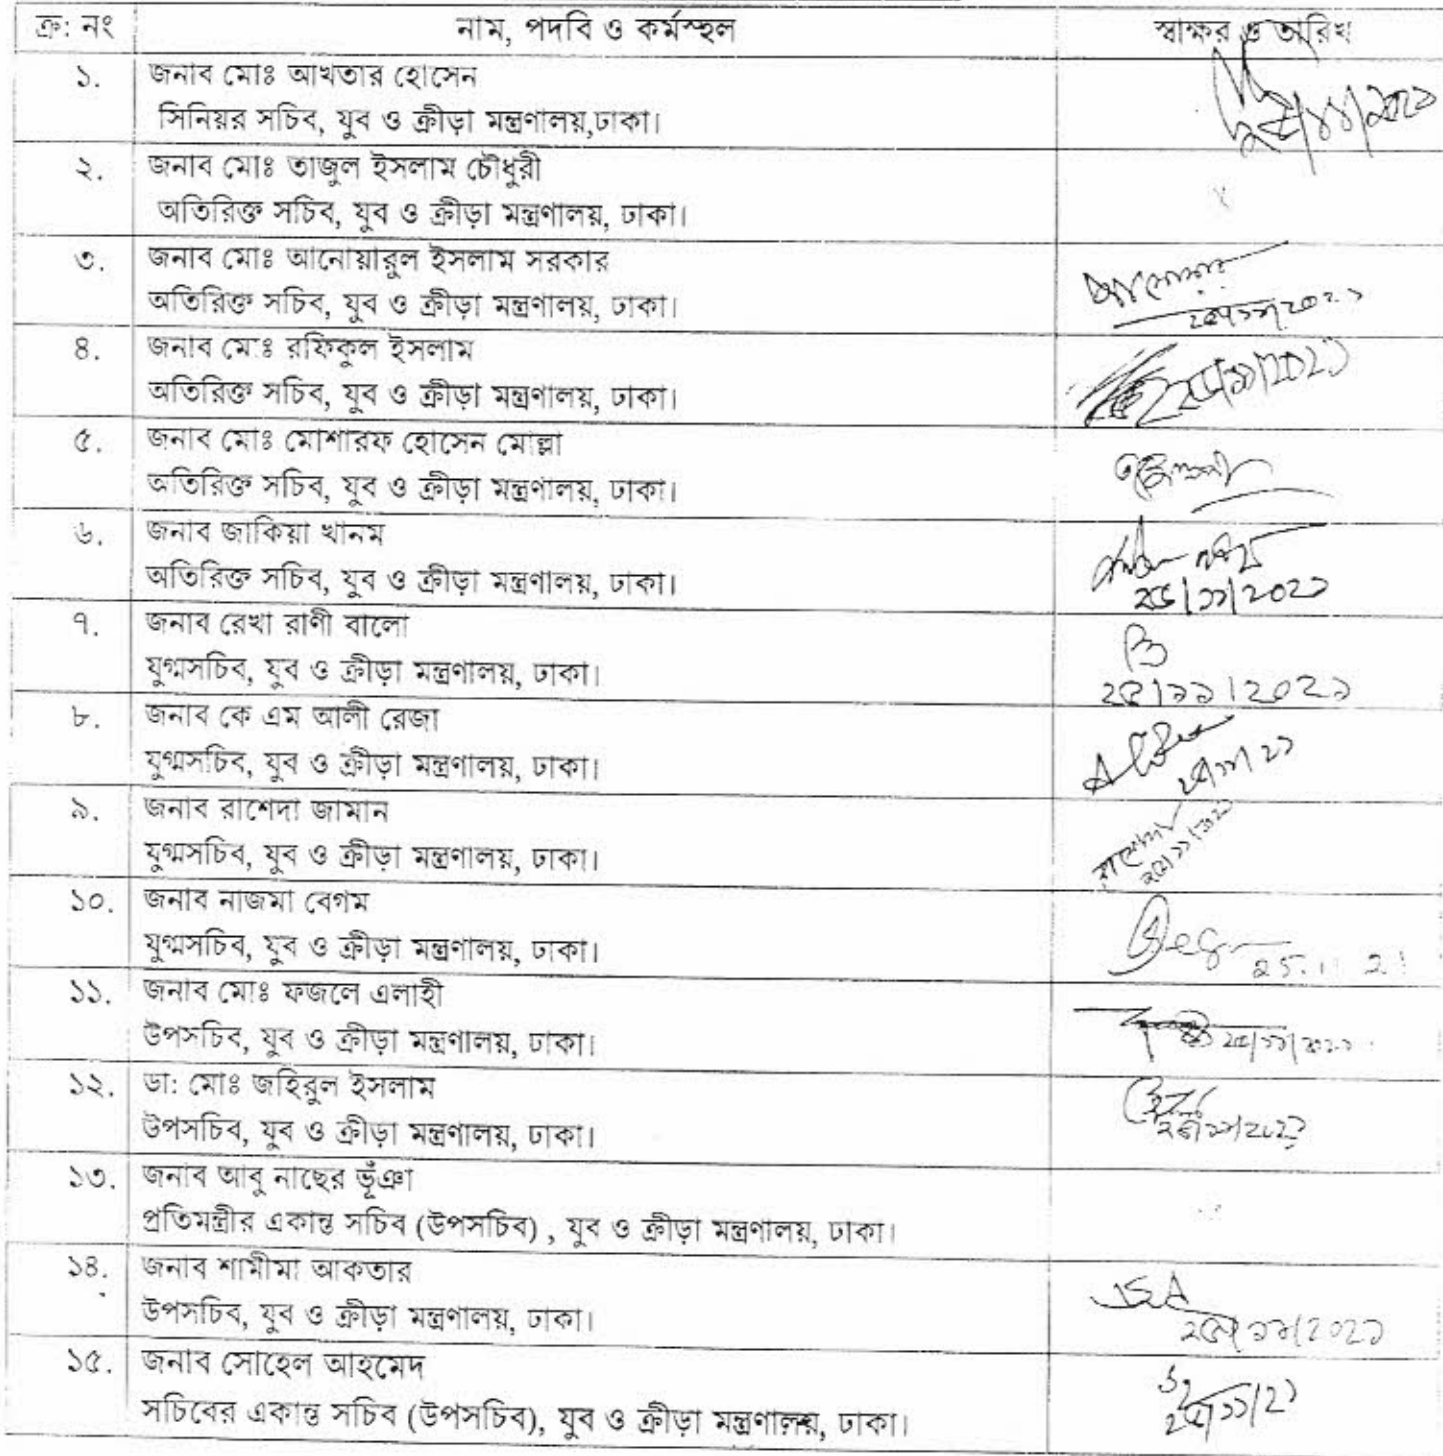 ক্র: নং নাম, পদবি ও কর্মস্হল স্বাক্ষর ও তারিখ
১. জনাব মোঃ আখতার হোসেন
সিনিয়র সচিব, যুব ও ক্রীড়া মন্ত্রণালয়,ঢাকা।
২. জনাব মোঃ তাজুল ইসলাম চৌধুরী
অতিরিক্ত সচিব, যুব ও ক্রীড়া মন্ত্রণালয়, ঢাকা।
৩. জনাব মোঃ আনোয়ারুল ইসলাম সরকার
অতিরিক্ত সচিব, যুব ও ক্রীড়া মন্ত্রণালয়, ঢাকা।
৪. জনাব মোঃ রফিকুল ইসলাম
অতিরিক্ত সচিব, যুব ও ক্রীড়া মন্ত্রণালয়, ঢাকা।
৫. জনাব মোঃ মোশারফ হোসেন মোল্লা
অতিরিক্ত সচিব, যুব ও ক্রীড়া মন্ত্রণালয়, ঢাকা।
৬. জনাব জাকিয়া খানম
অতিরিক্ত সচিব, যুব ও ক্রীড়া মন্ত্রণালয়, ঢাকা।
২৫/১১/২০২১
৭. জনাব রেখা রাণী বালো
যুগ্মসচিব, যুব ও ক্রীড়া মন্ত্রণালয়, ঢাকা।
২৫/১১/২০২১
৮. জনাব কে এম আলী রেজা
যুগ্মসচিব, যুব ও ক্রীড়া মন্ত্রণালয়, ঢাকা।
৯. জনাব রাশেদা জামান
যুগ্মসচিব, যুব ও ক্রীড়া মন্ত্রণালয়, ঢাকা।
১০. জনাব নাজমা বেগম
যুগ্মসচিব, যুব ও ক্রীড়া মন্ত্রণালয়, ঢাকা।
১১. জনাব মোঃ ফজলে এলাহী
উপসচিব, যুব ও ক্রীড়া মন্ত্রণালয়, ঢাকা।
১২. ডা: মোঃ জহিরুল ইসলাম
উপসচিব, যুব ও ক্রীড়া মন্ত্রণালয়, ঢাকা।
১৩. জনাব আবু নাছের ভূঁঞা
প্রতিমন্ত্রীর একান্ত সচিব (উপসচিব) , যুব ও ক্রীড়া মন্ত্রণালয়, ঢাকা।
১৪. জনাব শামীমা আকতার
উপসচিব, যুব ও ক্রীড়া মন্ত্রণালয়, ঢাকা।
২৫/১১/২০২১
১৫. জনাব সোহেল আহমেদ
সচিবের একান্ত সচিব (উপসচিব), যুব ও ক্রীড়া মন্ত্রণালয়, ঢাকা।